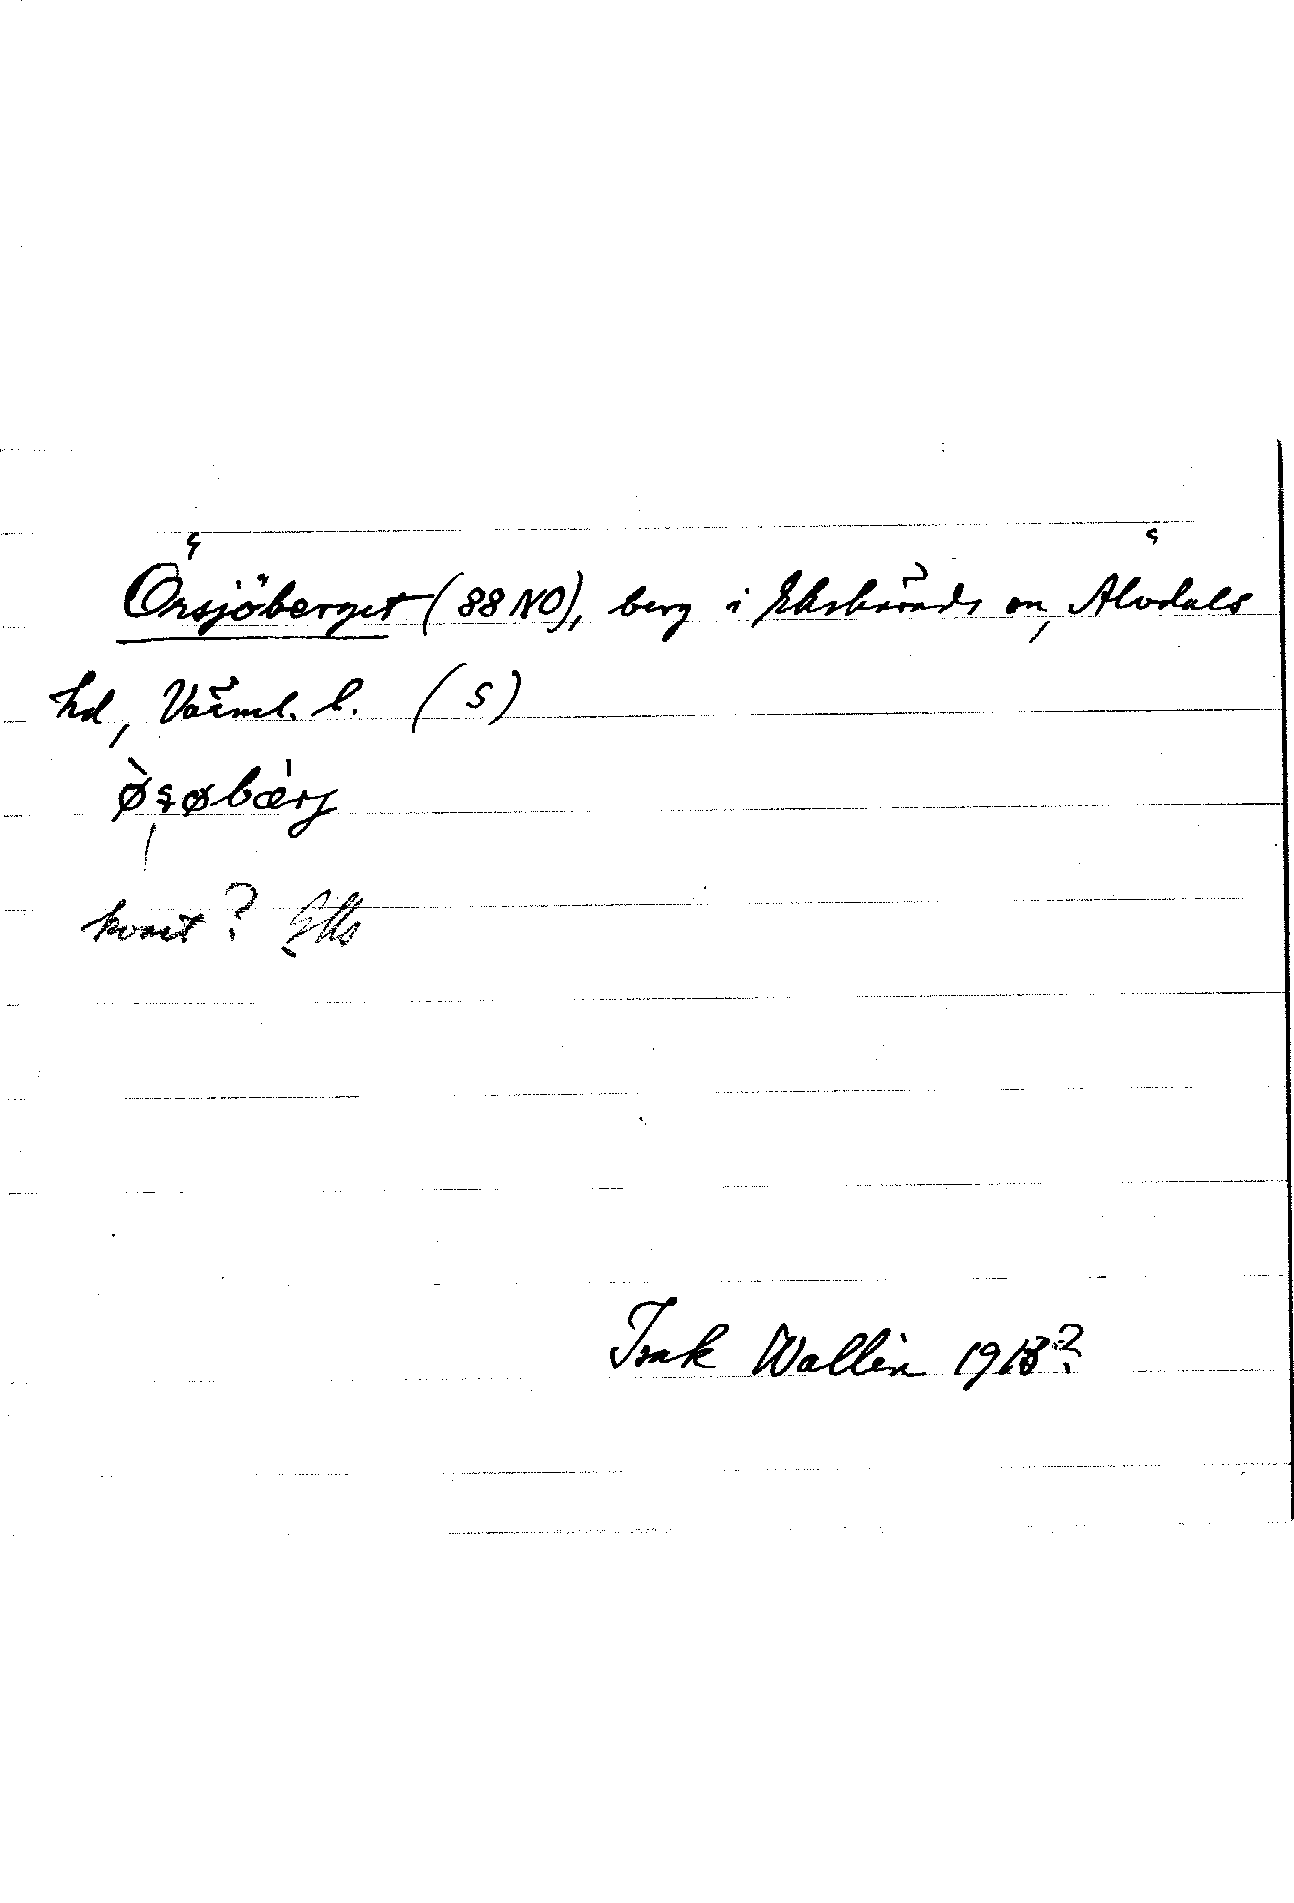 Örsjöberget (88 NO), berg i Ekshärads sn, Älvdals
hd, Värml. l. (S)
ø̀ʂøbǽrj
kvant?
Isak Wallin 1918?